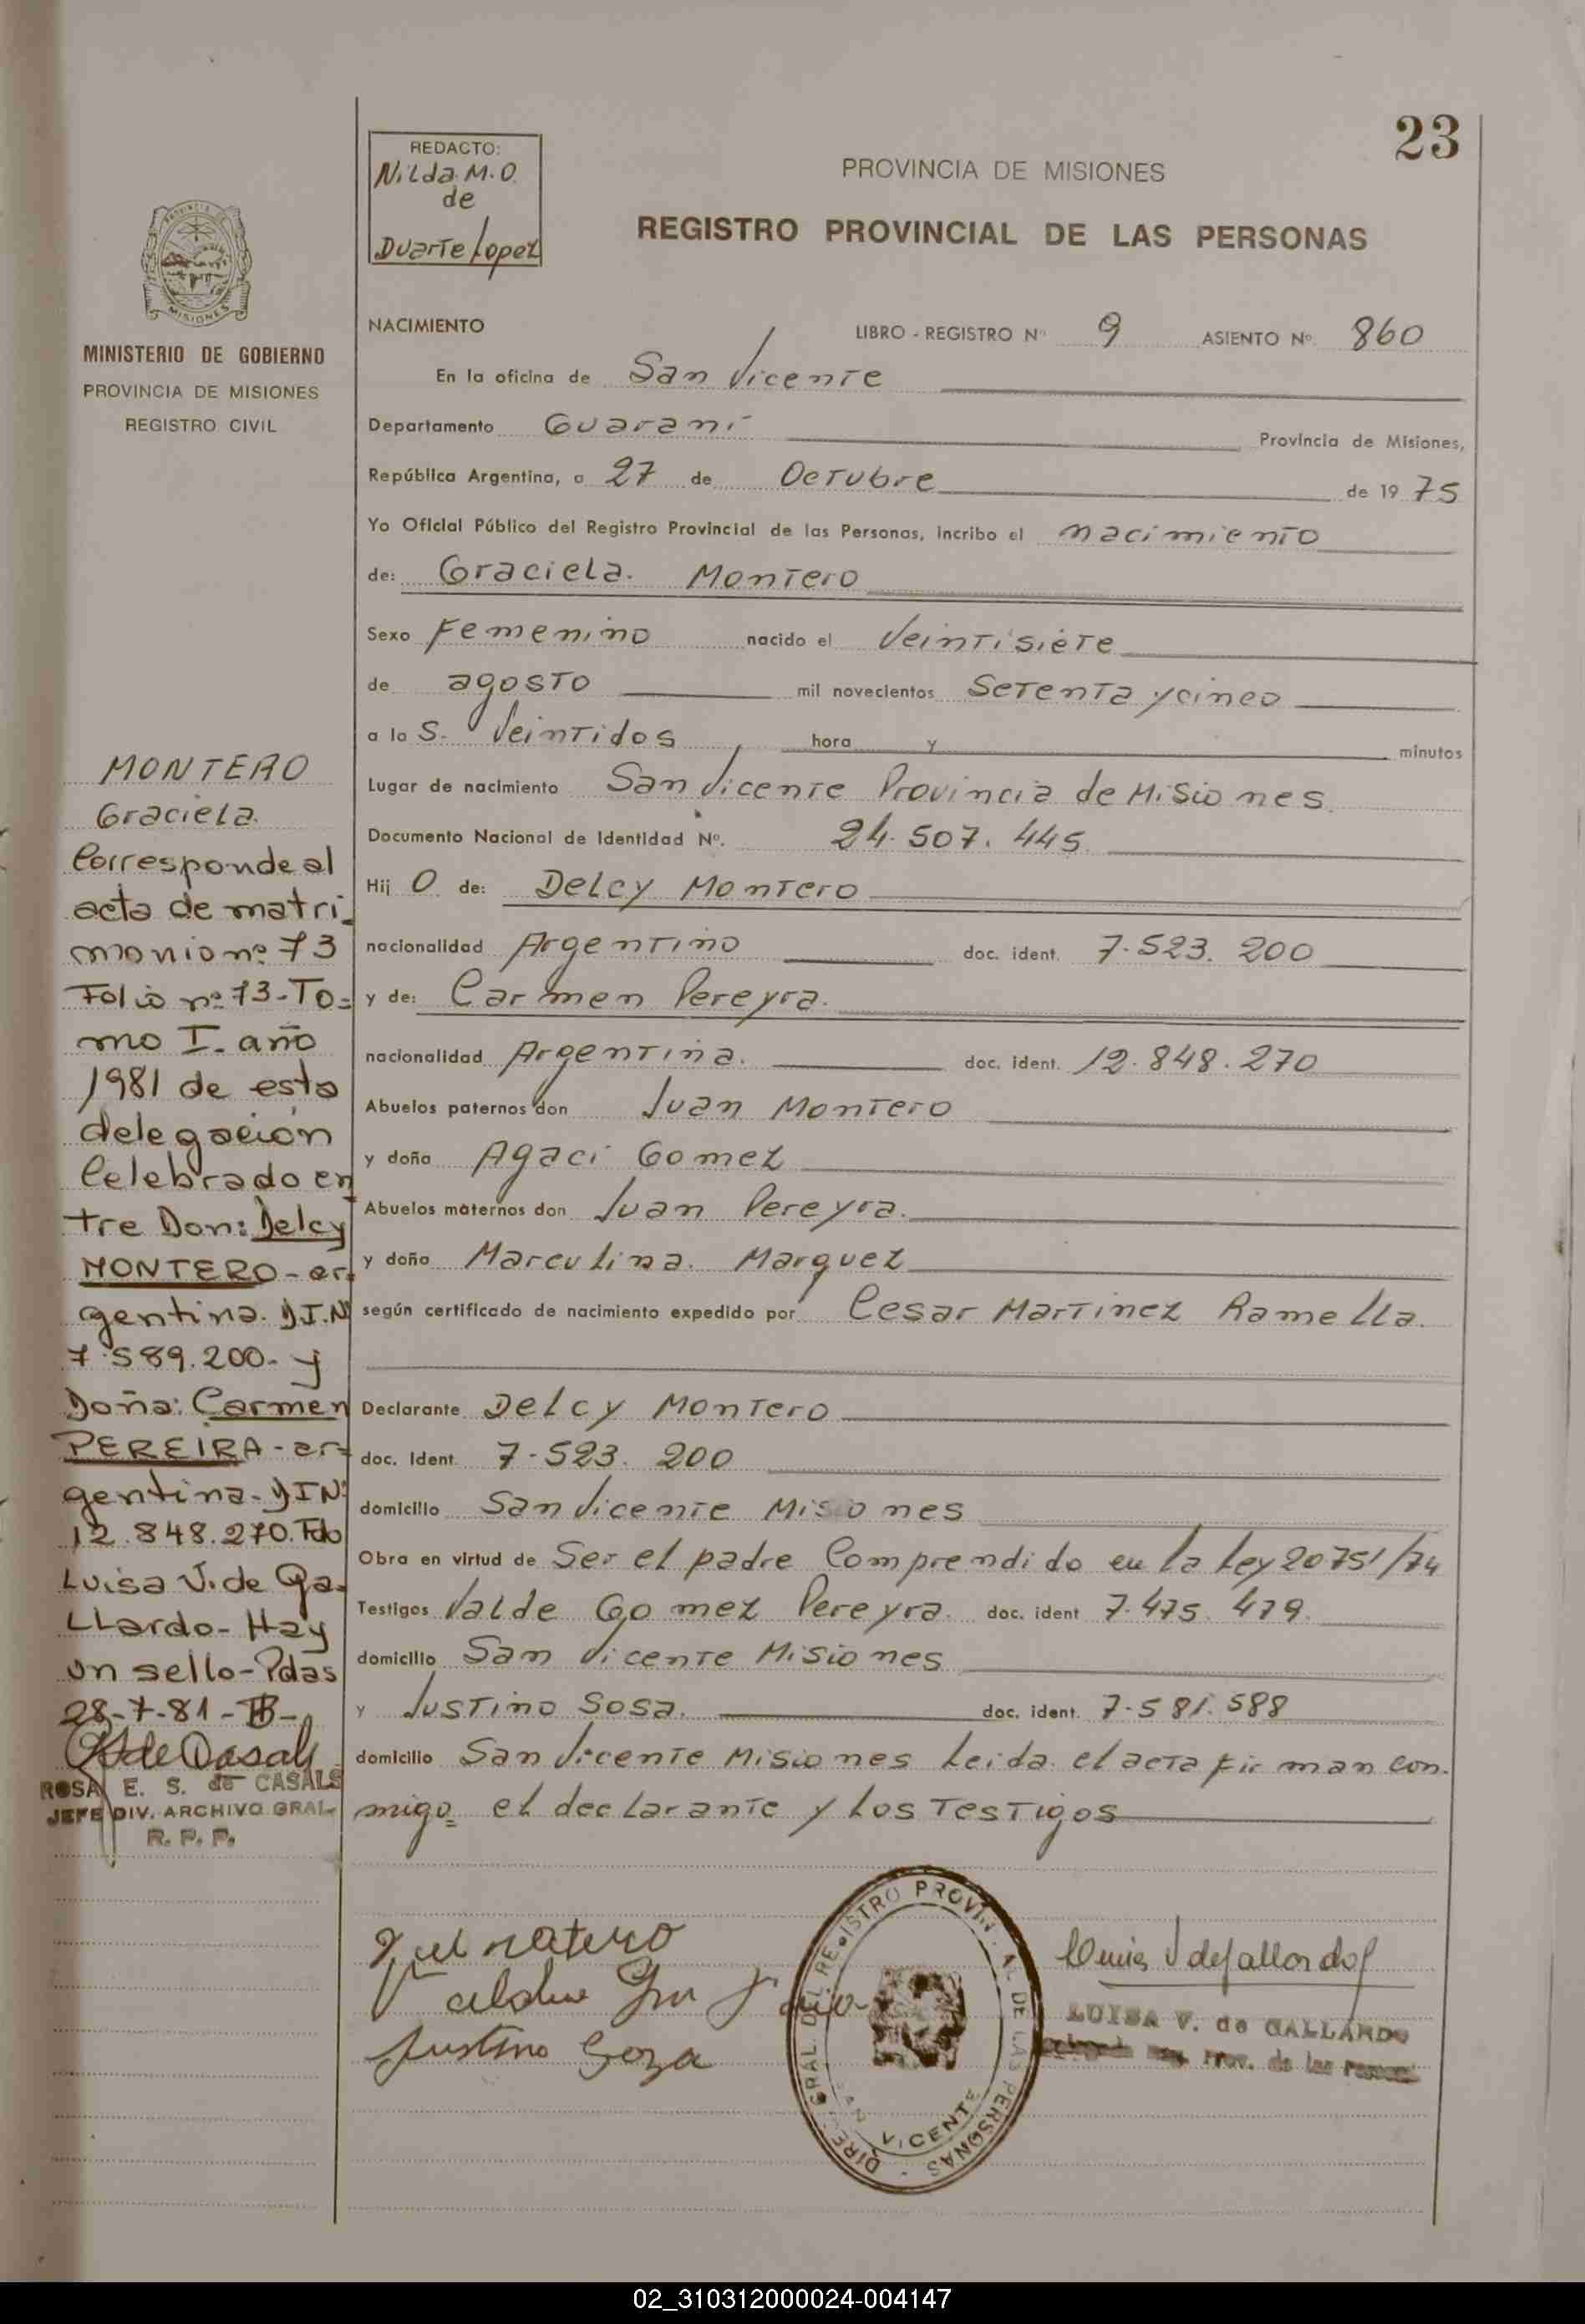 23
REDACTO:
Nilda M.O.
de
Duarte Lopez
PROVINCIA DE MISIONES
REGISTRO PROVINCIAL DE LAS PERSONAS
MISIONES
MINISTERIO DE GOBIERNO
PROVINCIA DE MISIONES
REGISTRO CIVIL
NACIMIENTO LIBRO - REGISTRO Nº 9 ASIENTO Nº 860
En la oficina de San Vicente
Departamento Guaraní Provincia de Misiones,
República Argentina, a 27 de Octubre de 19 75
Yo Oficial Público del Registro Provincial de las Personas, incribo el nacimiento
de: Graciela. Montero
Sexo Femenino nacido el Veintisiete
de agosto mil novecientos Setenta y cinco
a la S. Veintidos hora y minutos
Lugar de nacimiento San Vicente Provincia de Misiones.
Documento Nacional de Identidad Nº. 24.507.445
Hij O de: Delcy Montero
nacionalidad Argentino doc. ident. 7.523.200
y de: Carmen Pereyra.
nacionalidad Argentina. doc. ident. 12.848.270
Abuelos paternos don Juan Montero
y doña Agaci Gomez
Abuelos maternos don Juan Pereyra.
y doña Marculina. Marquez
según certificado de nacimiento expedido por Cesar Martinez Ramella.
Declarante Delcy Montero
doc. Ident. 7.523.200
domicilio San Vicente Misiones
Obra en virtud de Ser el padre Comprendido en la Ley 20751/74
Testigos Valde Gomez Pereyra. doc. ident 7.475.479.
domicilio San Vicente Misiones
y Justino Sosa. doc. ident. 7.581.588
domicilio San Vicente Misiones Leida el acta firman con-
migo el declarante y los Testigos
MONTERO
Graciela.
Corresponde al
acta de matri-
monio nº 73
Folio nº 73-To=
mo I. año
1981 de esta
delegación
Celebrado en
tre Don: Delcy
MONTERO-ar
gentina. DI.Nº
7.589.200- y
Doña: Carmen
PEREIRA-ar=
gentina-DINº
12.848.270. Fdo
Luisa V. de Ga-
LLardo- Hay
un sello-Pdas
28-7-81-
ROSA E. S. de CASALS
JEFE DIV. ARCHIVO GRAL.
R. P. P.
Justino Soza
DIRE. GRAL. DEL REGISTRO PROVIN. AL DE LAS PERSONAS
SAN VICENTE
LUISA V. de GALLARDO
Prov. de las
02_310312000024-004147